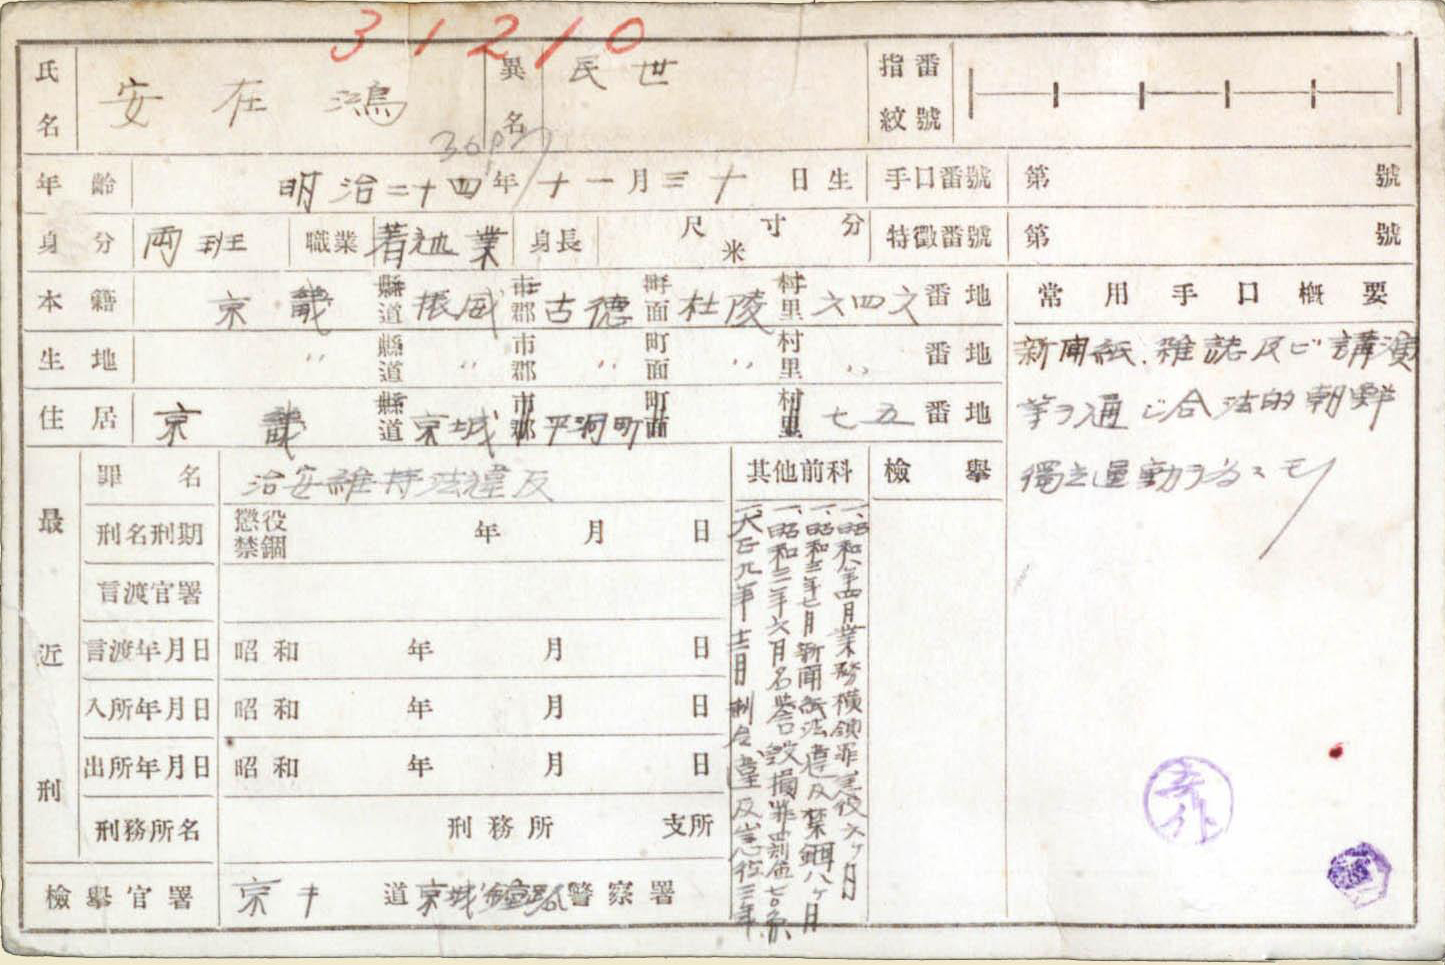 31210
氏名 安在鴻 異名 民世 指紋番號
年齡 明治二十四年十一月三十日生 手口番號 第 號
身分 両班 職業 著述業 身長 尺寸分 米 特徵番號 第 號
本籍 京畿 縣道 振威 市郡 古德 町面 杜陵 村里 六四六 番地 常用手口槪要
生地 〃 縣道 〃 市郡 〃 町面 〃 村里 〃 番地 新聞紙、雜誌及ビ講演
住居 京畿 縣道 京城 市郡 平洞町 町面 村里 七五 番地 等ヲ通ジ合法的朝鮮
獨立運動ヲ為スモノ
最近刑
罪名 治安維持法違反 其他前科 檢擧
刑名刑期 懲役 禁錮 年 月 日
言渡官署
言渡年月日 昭和 年 月 日
入所年月日 昭和 年 月 日
出所年月日 昭和 年 月 日
刑務所名 刑務所 支所
檢擧官署 京キ 道 京城鐘路 警察署
一、昭和八年四月業務橫領罪懲役六ヶ月
一、昭和三年七月新聞紙法違反禁錮八ヶ月
一、昭和三年六月名譽毀損罪
一、大正九年十二月制令違反懲役三年